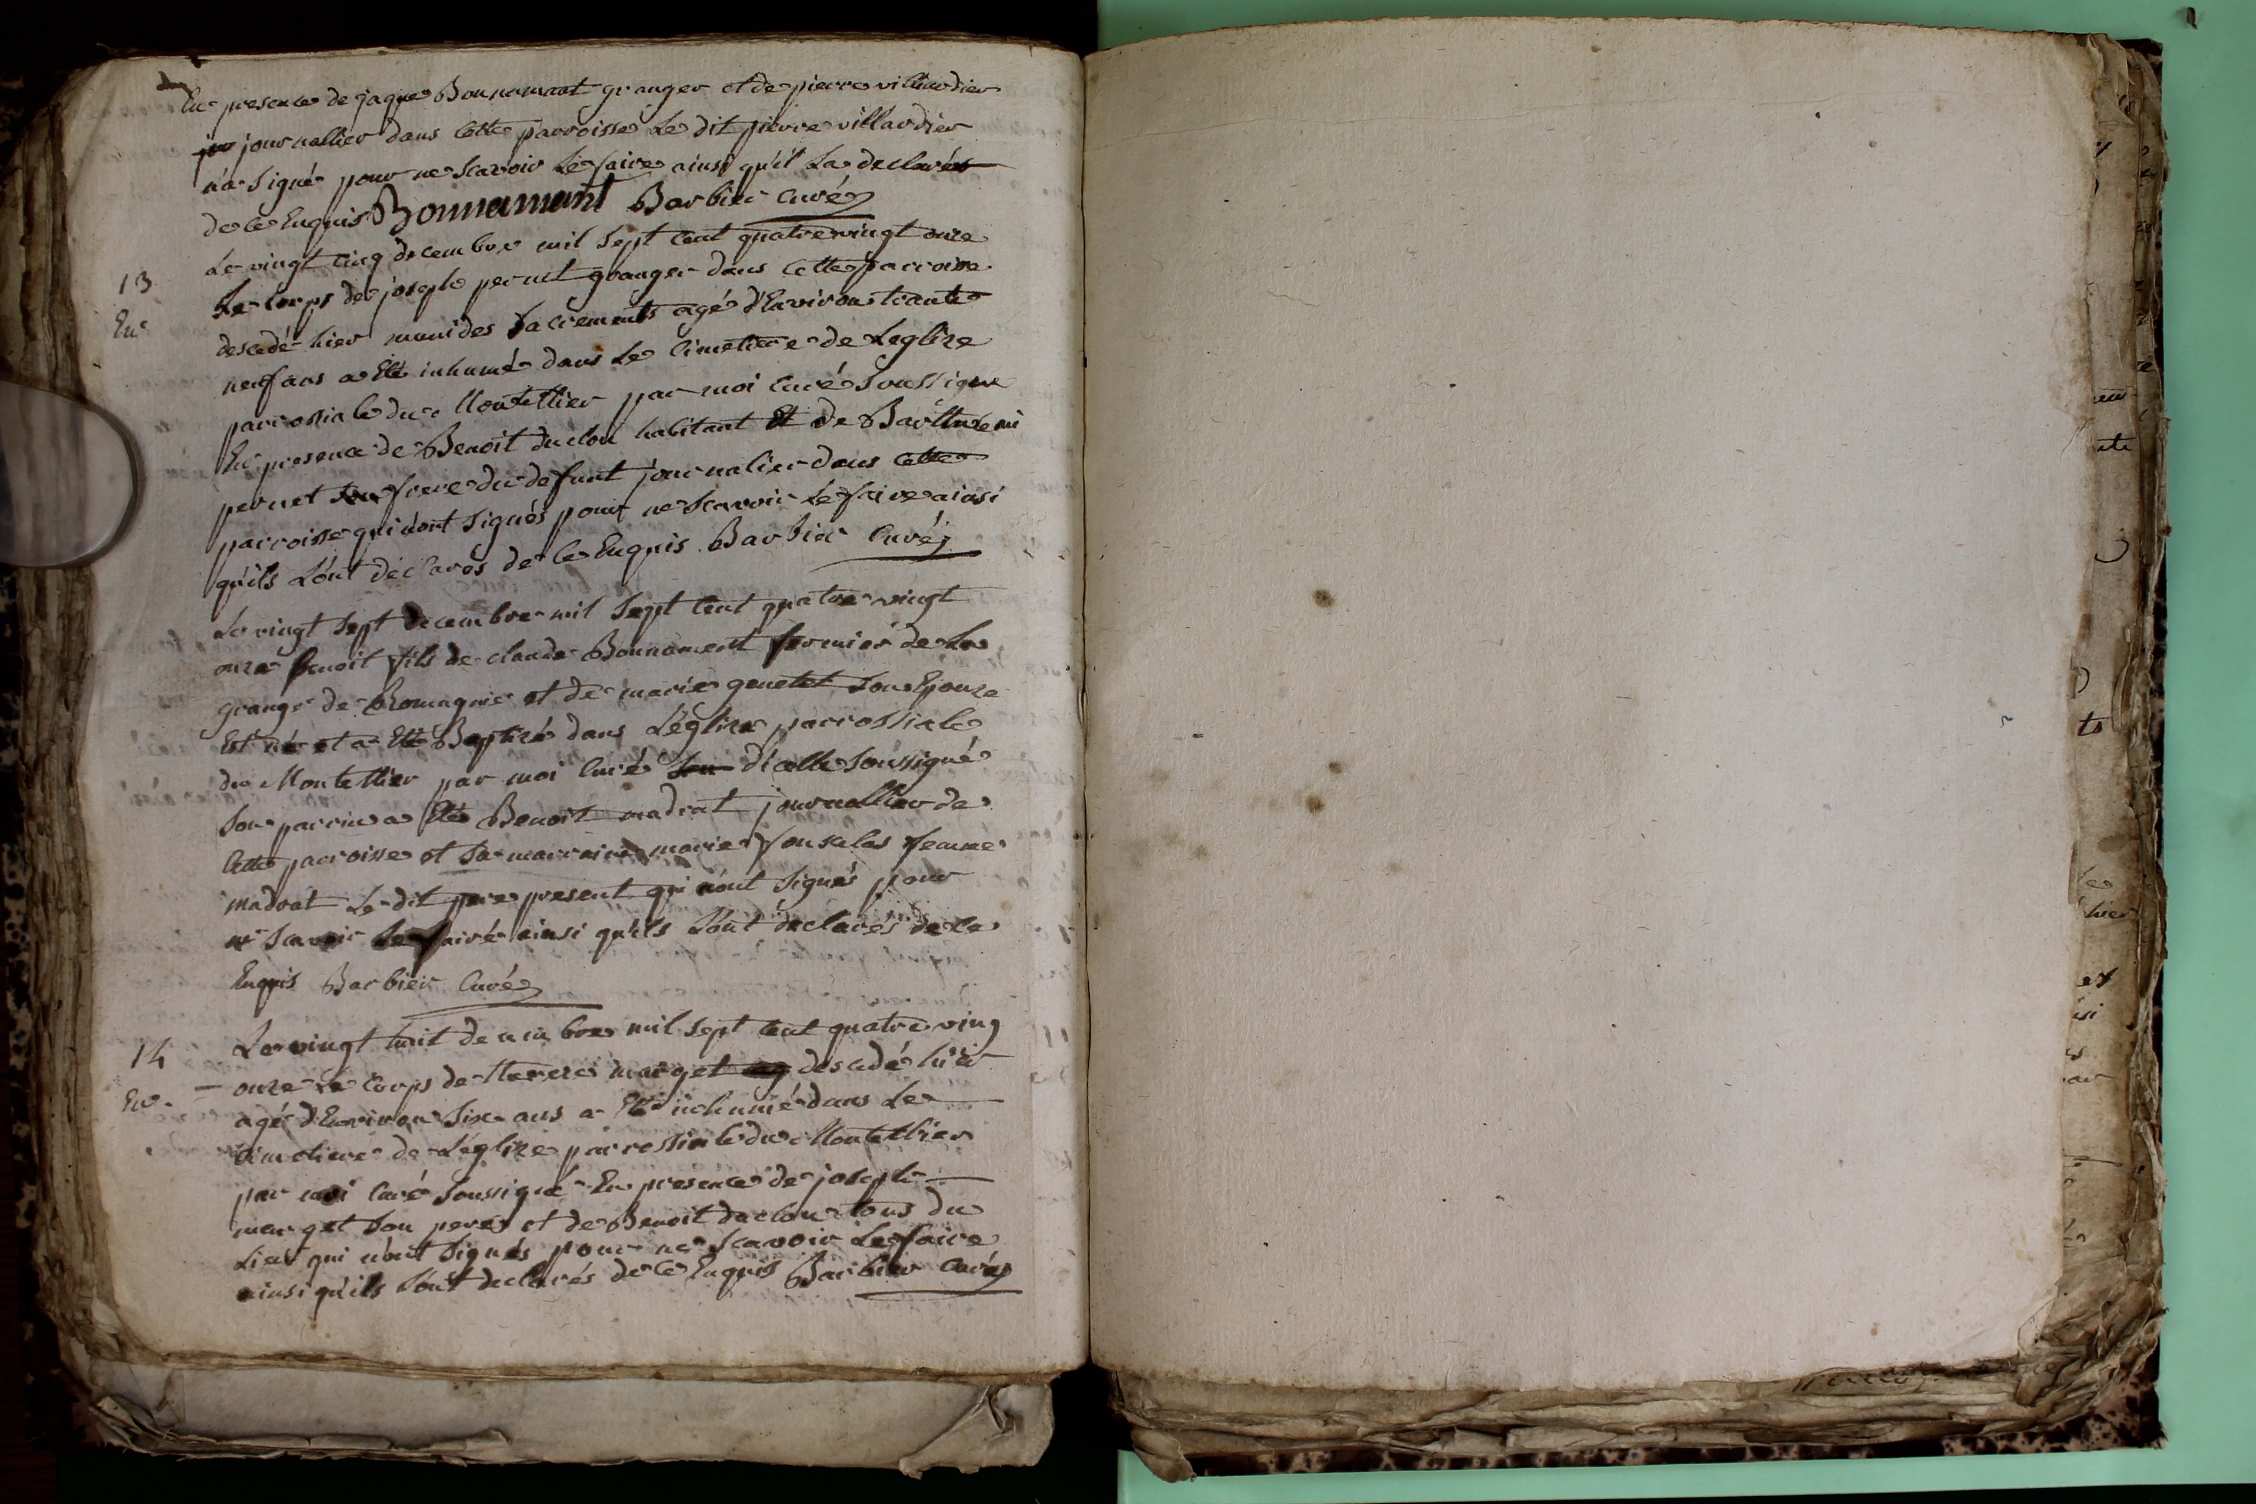 En presence de jaque Bonnamant granger et de pierre villardier
jour journallier dans cette parroisse Le dit pierre villardier
n'a signé pour ne scavoir Le faire ainsi qu'il La declarés
de ce Enquis Bonnamant Barbier Curé
13
En
Le vingt cinq decembre mil sept cent quatre vingt onze
Le Corps de joseph pernet granger dans Cette parroisse
descedé hier muni des sacrements agé d'Environ trante
neuf ans a Eté inhumé dans Le Cimetiere de Leglize
parrossiale du Montellier par moi Curé Soussigné
En presence de Benoit duclou habitant Et de Barthelemi
pernet frere du defunt journalier dans cette
parroisse qui n'ont signés pour ne scavoir Le faire ainsi
qu'ils L'ont declarés de Ce Enquis Barbier Curé
Le vingt sept decembre mil sept cent quatre vingt
onze benoit fils de claude Bonnament fermier de La
grange de Romagnie et de marie genetet son Epouze
Est né et a Eté Baptizé dans L'églize parrossiale
du Montellier par moi Curé d'icelle soussigné
Son parrin a Eté Benoit madrat journallier de
Cette parroisse et sa marraine marie femme
madrat Le dit pere present qui n'ont signés pour
ne scavoir Le faire ainsi qu'ils L'ont declarés de Ce
Enquis Barbier Curé
14
En
Le vingt huit decembre mil sept cent quatre ving
onze Le Corps de marget descedé hier
agé d'Environ six ans a Eté inhumé dans Le
Cimetiere de L'eglize parrossiale du Montellier
par moi Curé Soussigné En presence de joseph
marget son pere et de Benoit duclou tous du
Lieu qui n'ont signés pour ne scavoir Le faire
ainsi qu'ils L'ont declarés de Ce Enquis Barbier Curé